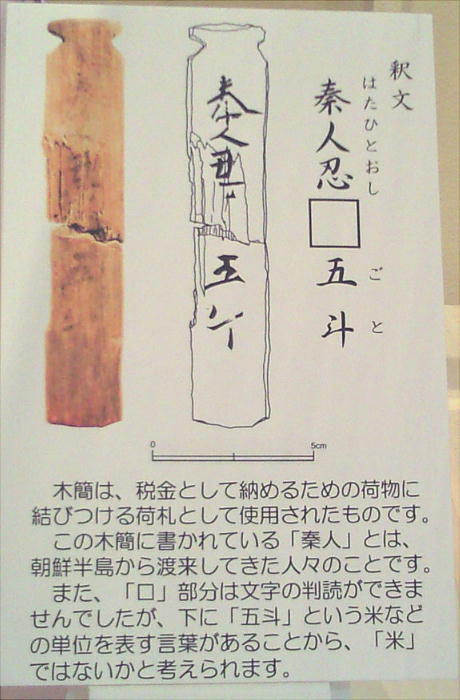 釈文
はたひとおし
秦人忍□五斗
ごと
秦人
五斗
0 5cm
木簡は、税金として納めるための荷物に
結びつける荷札として使用されたものです。
この木簡に書かれている「秦人」とは、
朝鮮半島から渡来してきた人々のことです。
また、「口」部分は文字の判読ができま
せんでしたが、下に「五斗」という米など
の単位を表す言葉があることから、「米」
ではないかと考えられます。